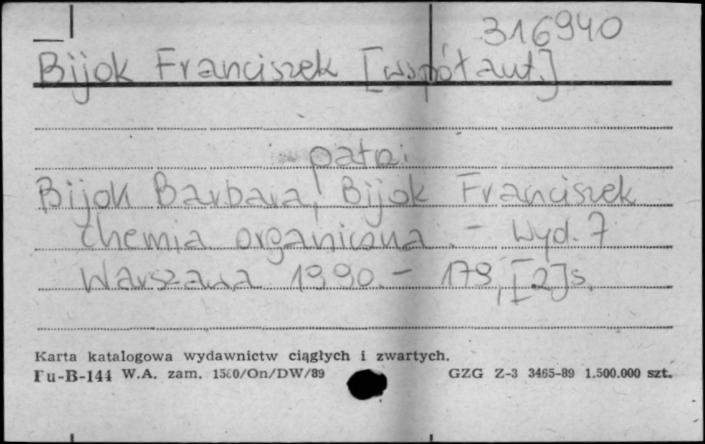 316940
Bijok Franciszek [współaut.]
patrz:
Bijok Barbara, Bijok Franciszek
Chemia organiczna. - Wyd. 7
Warszawa 1990. - 179, [2] s.
Karta katalogowa wydawnictw ciągłych i zwartych.
Pu-B-144 W.A. zam. 1560/On/DW/89 GZG Z-3 3465-89 1.500.000 szt.